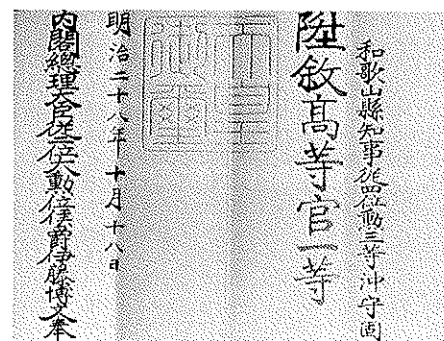 和歌山縣知事從四位勳三等沖守固
陞敘高等官一等
天皇
御璽
明治二十八年十月十八日
内閣總理大臣從二位大勳位侯爵伊藤博文奉